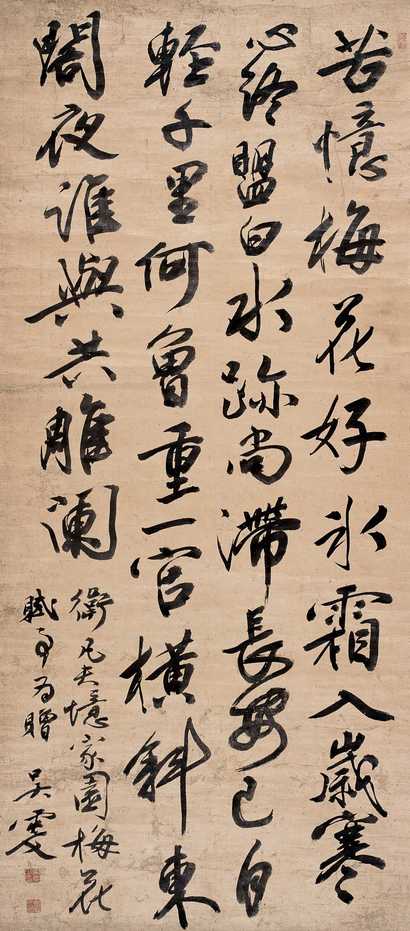 苦憶梅花好氷霜入歲寒
心終盟白水跡尚滯長安已自
輕千里何曾重一官橫斜東
閣夜誰與共雕闌
衛凡夫憶家園梅花
賦此為贈 吳雯